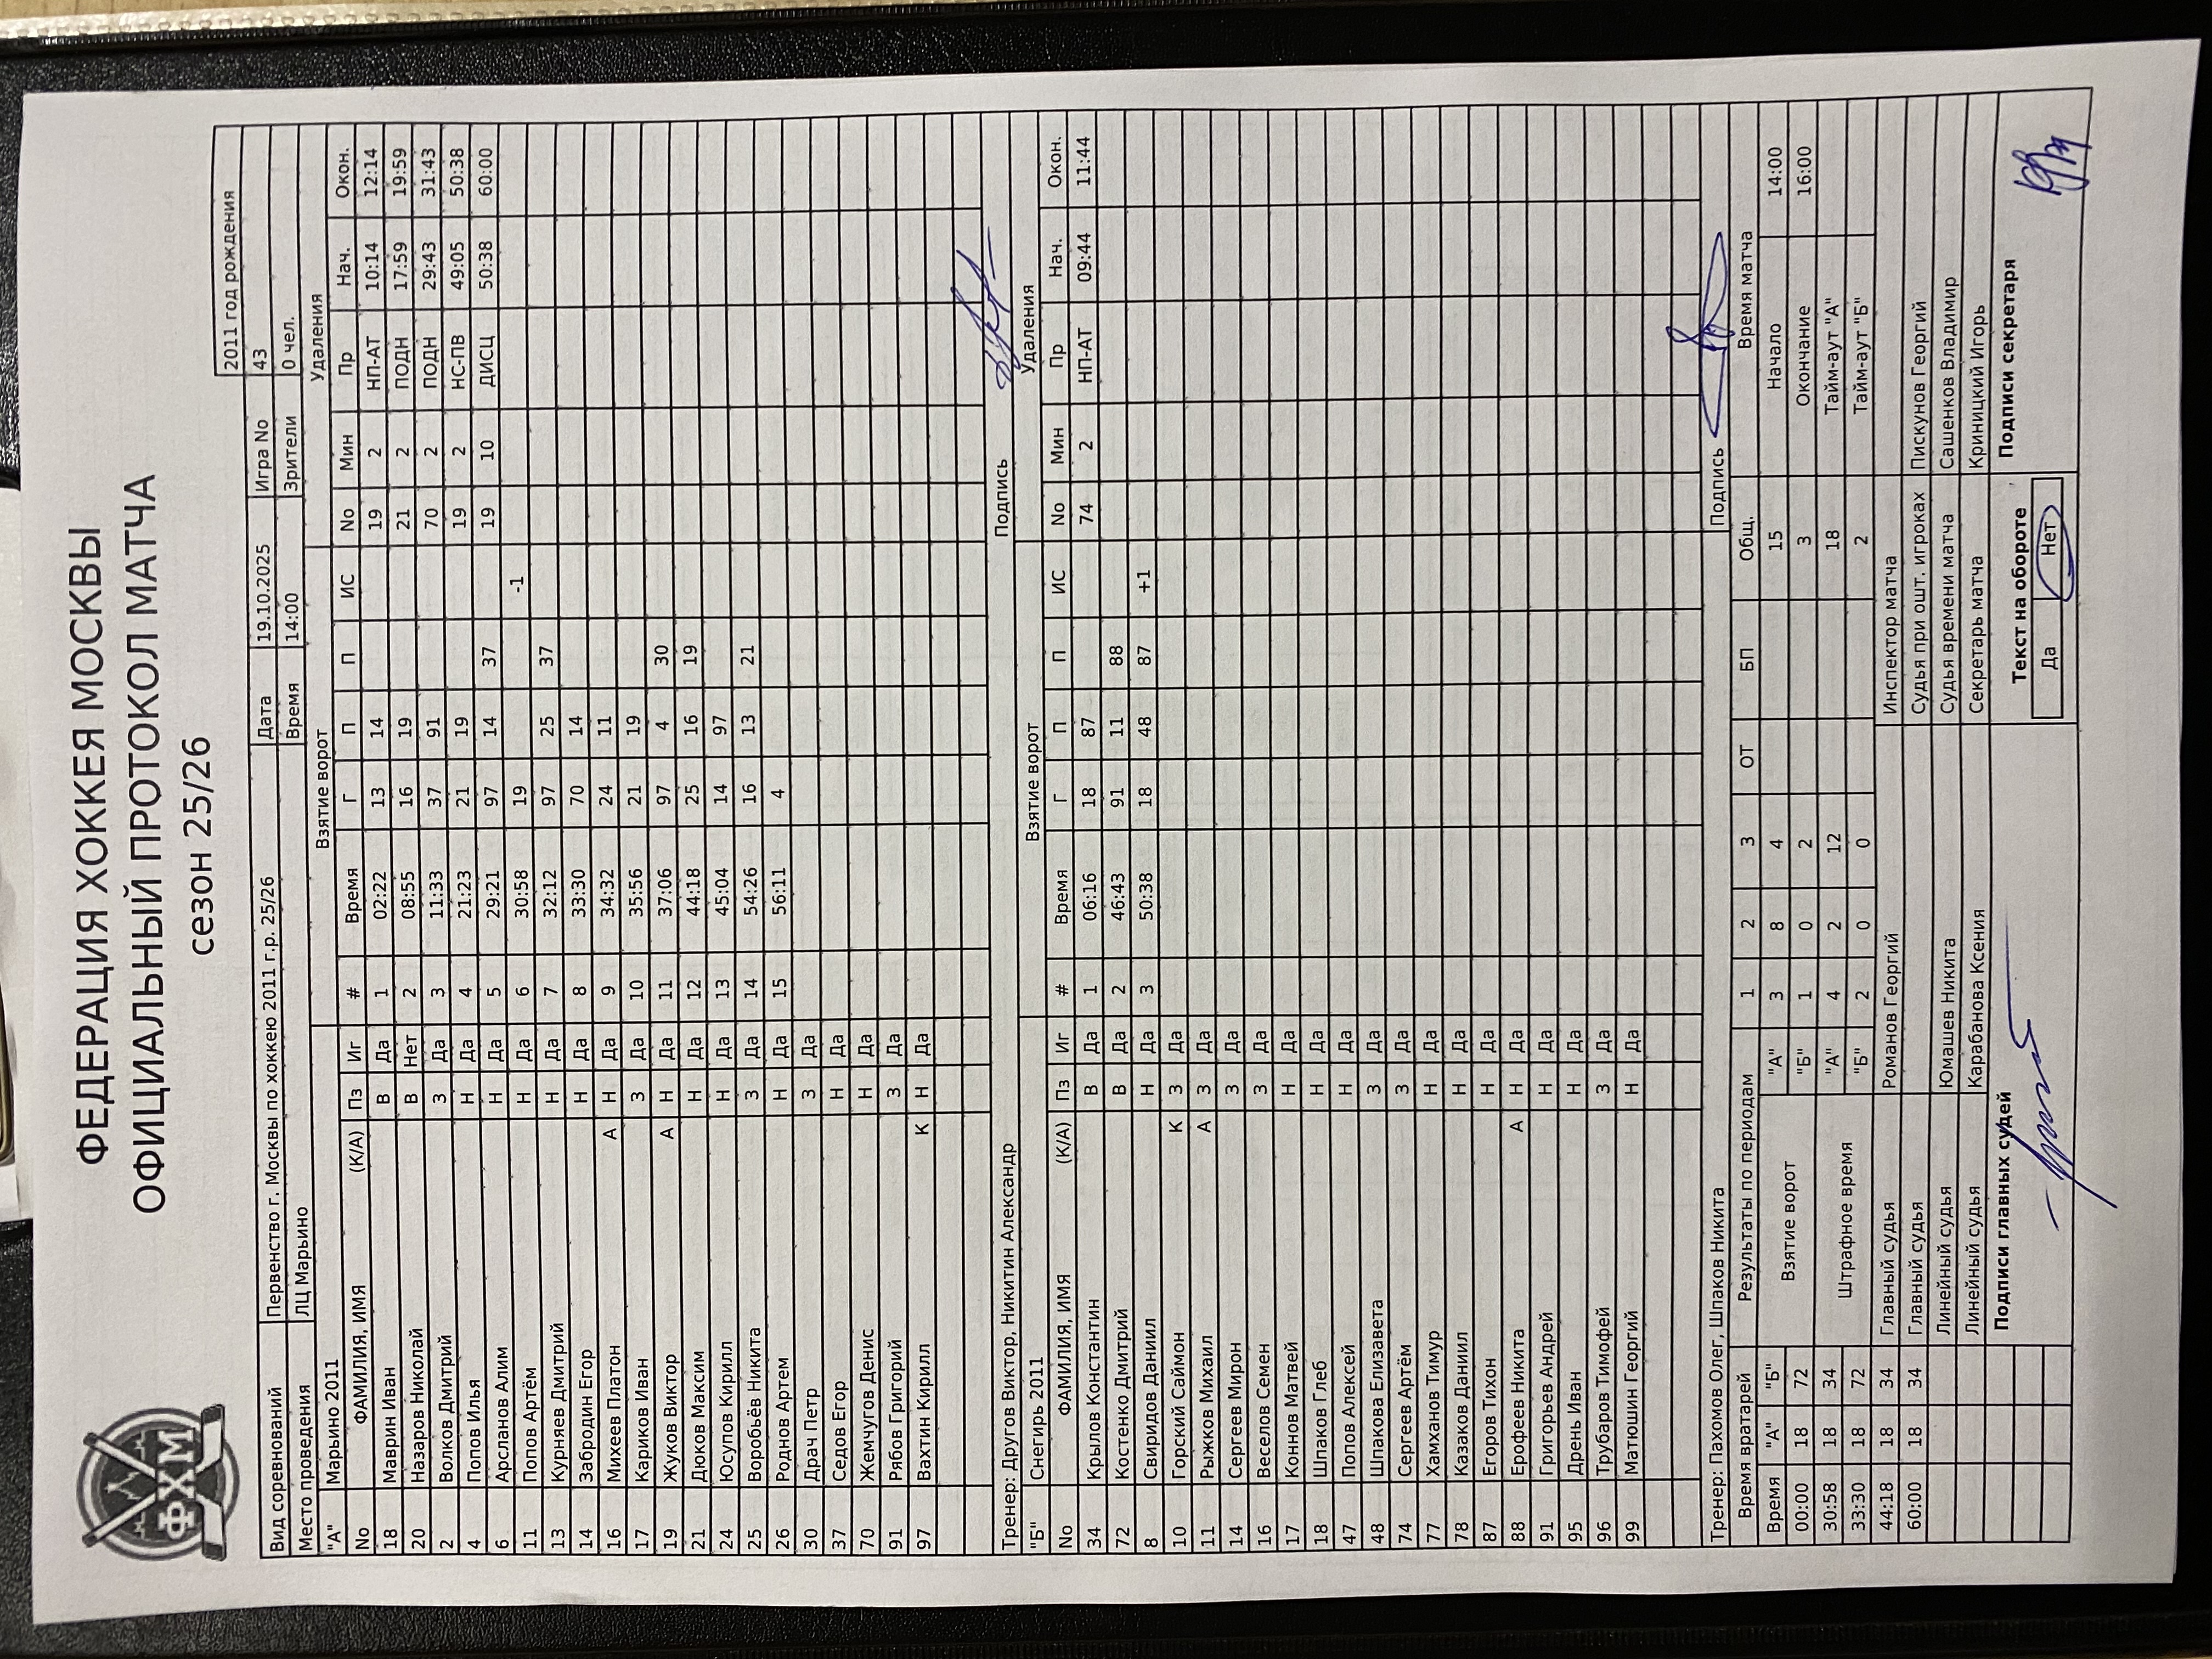 ФХМ
ФЕДЕРАЦИЯ ХОККЕЯ МОСКВЫ
ОФИЦИАЛЬНЫЙ ПРОТОКОЛ МАТЧА
сезон 25/26
2011 год рождения
Вид соревнований Первенство г. Москвы по хоккею 2011 г.р. 25/26 Дата 19.10.2025 Игра No 43
Место проведения ЛЦ Марьино Время 14:00 Зрители 0 чел.
"А" Марьино 2011 Взятие ворот Удаления
No ФАМИЛИЯ, ИМЯ (К/А) Пз Иг # Время Г П П ИС No Мин Пр Нач. Окон.
18 Маврин Иван В Да 1 02:22 13 14 19 2 НП-АТ 10:14 12:14
20 Назаров Николай В Нет 2 08:55 16 19 21 2 ПОДН 17:59 19:59
2 Волков Дмитрий З Да 3 11:33 37 91 70 2 ПОДН 29:43 31:43
4 Попов Илья Н Да 4 21:23 21 19 19 2 НС-ПВ 49:05 50:38
6 Арсланов Алим Н Да 5 29:21 97 14 37 19 10 ДИСЦ 50:38 60:00
11 Попов Артём Н Да 6 30:58 19 -1
13 Курняев Дмитрий Н Да 7 32:12 97 25 37
14 Забродин Егор Н Да 8 33:30 70 14
16 Михеев Платон А Н Да 9 34:32 24 11
17 Кариков Иван З Да 10 35:56 21 19
19 Жуков Виктор А Н Да 11 37:06 97 4 30
21 Дюков Максим Н Да 12 44:18 25 16 19
24 Юсупов Кирилл Н Да 13 45:04 14 97
25 Воробьёв Никита З Да 14 54:26 16 13 21
26 Роднов Артем Н Да 15 56:11 4
30 Драч Петр З Да
37 Седов Егор Н Да
70 Жемчугов Денис Н Да
91 Рябов Григорий З Да
97 Вахтин Кирилл К Н Да
Тренер: Другов Виктор, Никитин Александр Подпись
"Б" Снегирь 2011 Взятие ворот Удаления
No ФАМИЛИЯ, ИМЯ (К/А) Пз Иг # Время Г П П ИС No Мин Пр Нач. Окон.
34 Крылов Константин В Да 1 06:16 18 87 74 2 НП-АТ 09:44 11:44
72 Костенко Дмитрий В Да 2 46:43 91 11 88
8 Свиридов Даниил Н Да 3 50:38 18 48 87 +1
10 Горский Саймон К З Да
11 Рыжков Михаил А З Да
14 Сергеев Мирон З Да
16 Веселов Семен З Да
17 Коннов Матвей Н Да
18 Шпаков Глеб Н Да
47 Попов Алексей Н Да
48 Шпакова Елизавета З Да
74 Сергеев Артём З Да
77 Хамханов Тимур Н Да
78 Казаков Даниил Н Да
87 Егоров Тихон Н Да
88 Ерофеев Никита А Н Да
91 Григорьев Андрей Н Да
95 Дрень Иван Н Да
96 Трубаров Тимофей З Да
99 Матюшин Георгий Н Да
Тренер: Пахомов Олег, Шпаков Никита Подпись
Время вратарей Результаты по периодам 1 2 3 ОТ БП Общ. Время матча
Время "А" "Б" Взятие ворот "А" 3 8 4 15 Начало 14:00
00:00 18 72 "Б" 1 0 2 3 Окончание 16:00
30:58 18 34 Штрафное время "А" 4 2 12 18 Тайм-аут "А"
33:30 18 72 "Б" 2 0 0 2 Тайм-аут "Б"
44:18 18 34 Главный судья Романов Георгий Инспектор матча
60:00 18 34 Главный судья Судья при ошт. игроках Пискунов Георгий
Линейный судья Юмашев Никита Судья времени матча Сашенков Владимир
Линейный судья Карабанова Ксения Секретарь матча Криницкий Игорь
Подписи главных судей Текст на обороте Подписи секретаря
Да Нет